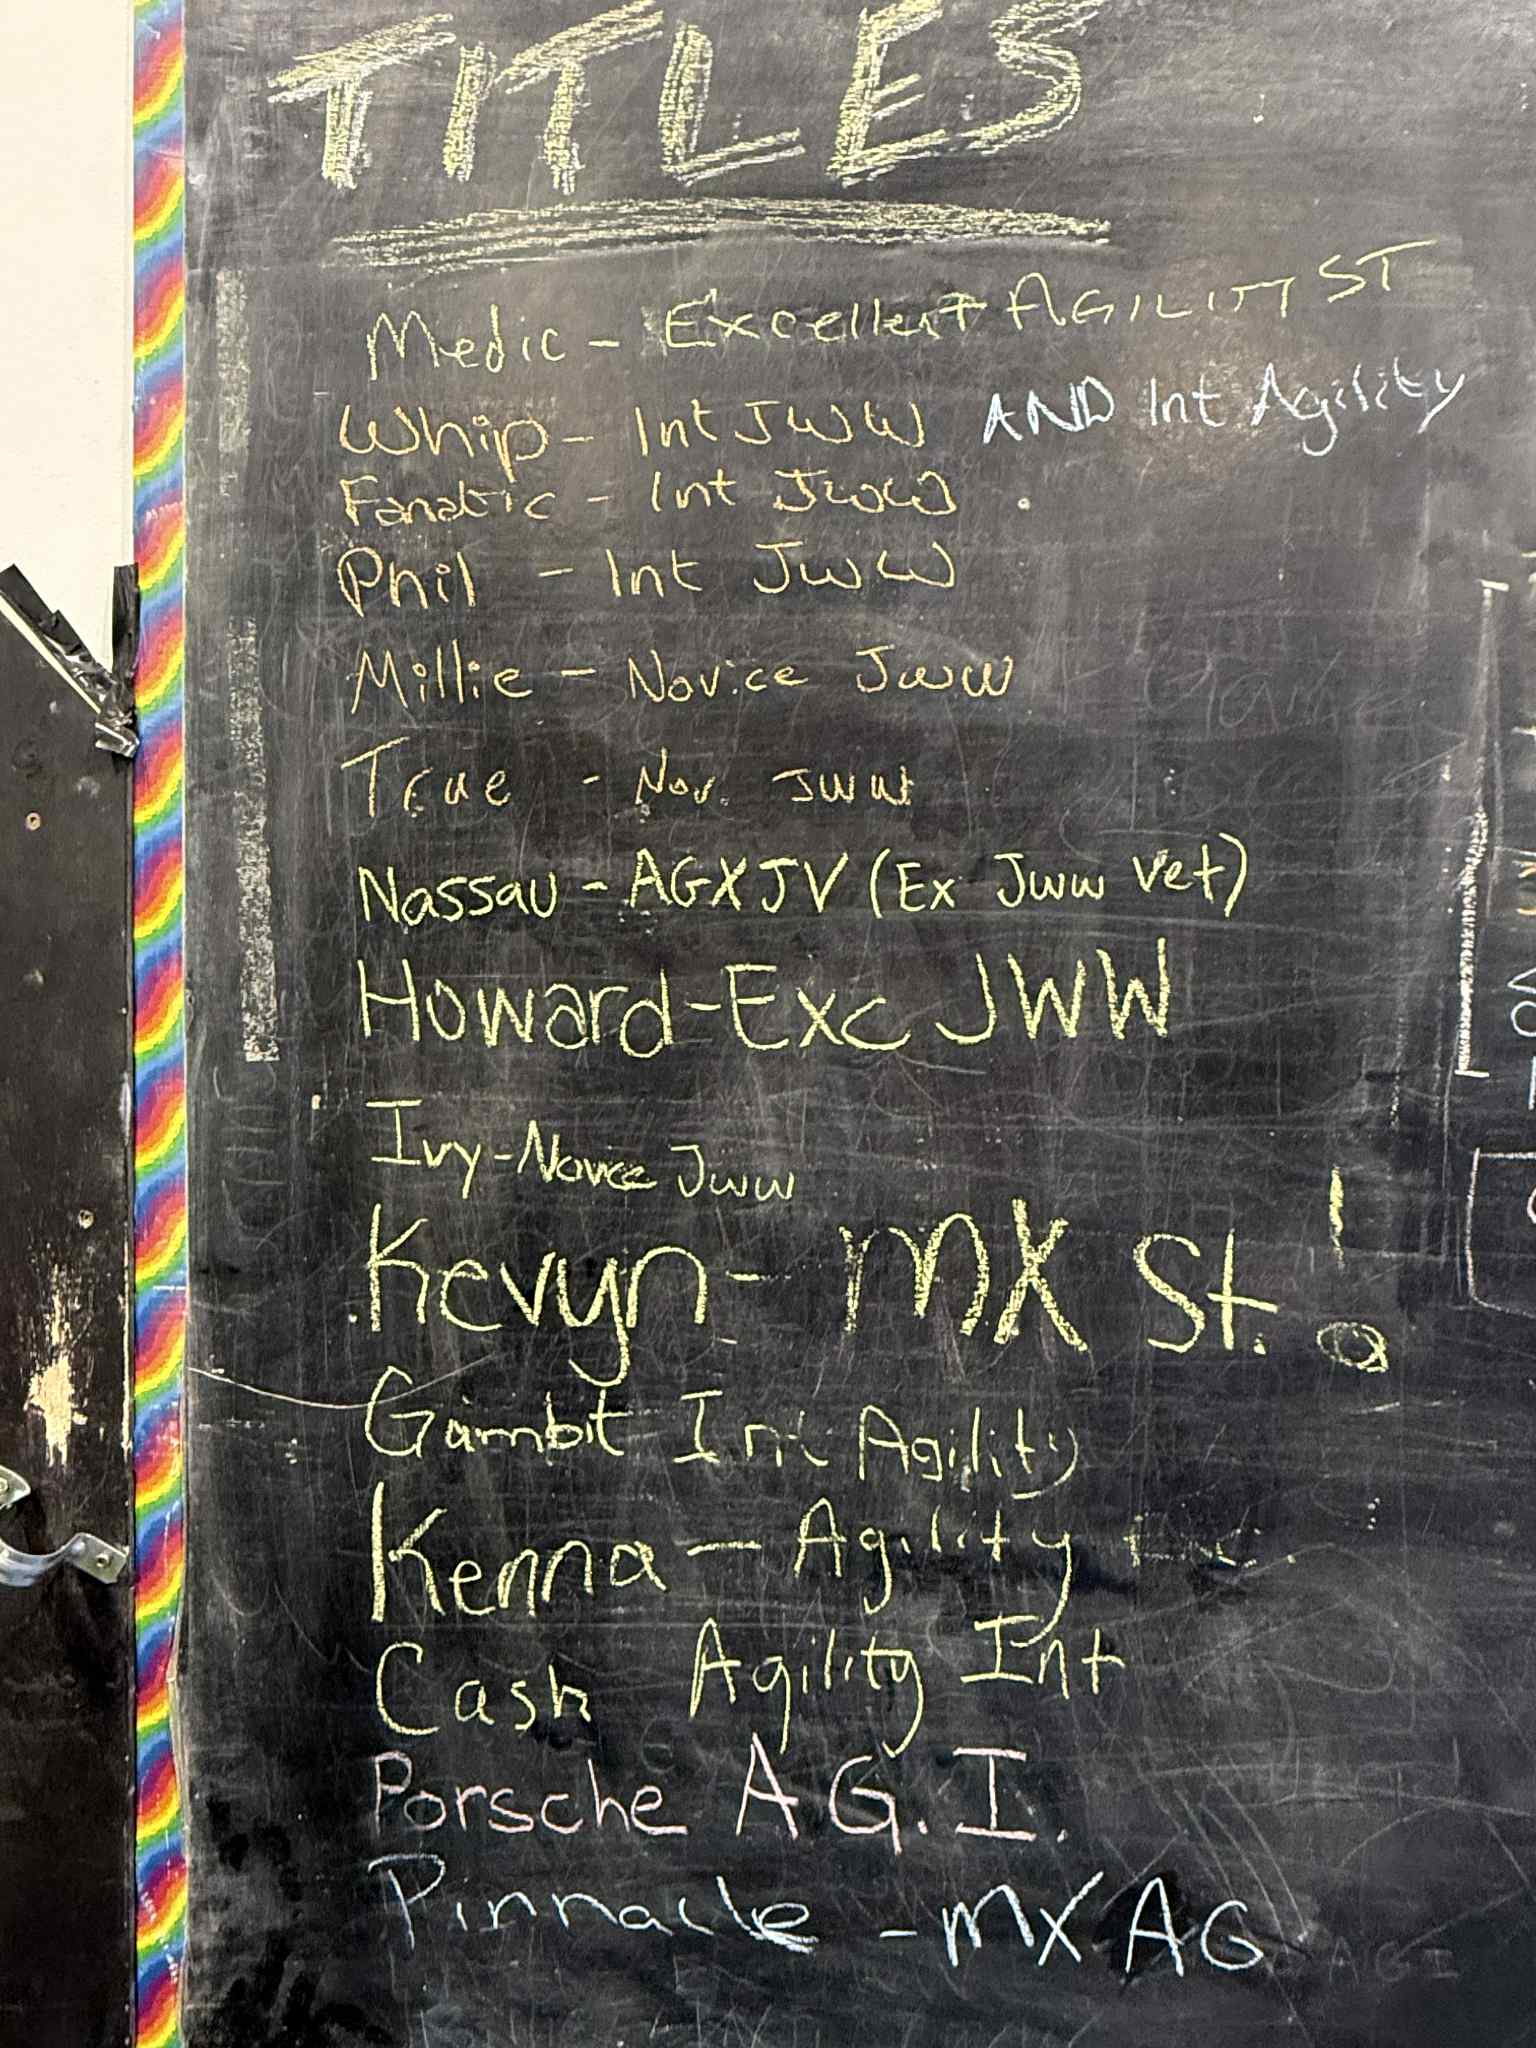 TITLES
Medic - Excellent AGILITY ST
Whip - Int JWW AND Int Agility
Fanatic - Int JWW
Phil - Int JWW
Millie - Novice JWW
True - Nov. JWW
Nassau - AGXJV (Ex Jww Vet)
Howard - Exc JWW
Ivy - Novice Jww
Kevyn - MX St. !
Gambit Int Agility
Kenna - Agility
Cash Agility Int
Porsche AG.I.
Pinnacle - MX AG
AGI